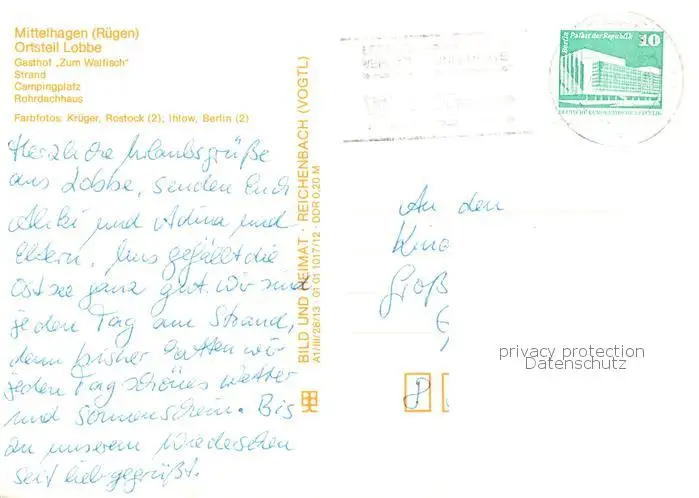 Mittelhagen (Rügen)
Ortsteil Lobbe
Gasthof „Zum Walfisch"
Strand
Campingplatz
Rohrdachhaus
Farbfotos: Krüger, Rostock (2); Ihlow, Berlin (2)
Herzliche Urlaubsgrüße
aus Lobbe, senden Euch
und Adina und
Eltern. Uns gefällt die
Ostsee ganz gut. wir sind
jeden Tag am Strand,
denn bisher hatten wir
jeden Tag schönes Wetter
und Sonnenschein. Bis
zu unserem Wiedersehen
seit liebgegrüßt.
BILD UND HEIMAT · REICHENBACH (VOGTL)
A1/III/26/13 · 01 01 1017/12 · DDR 0,20 M
Berlin, Palast der Republik
10
DEUTSCHE DEMOKRATISCHE REPUBLIK
An den
Kind
Groß
8
privacy protection
Datenschutz